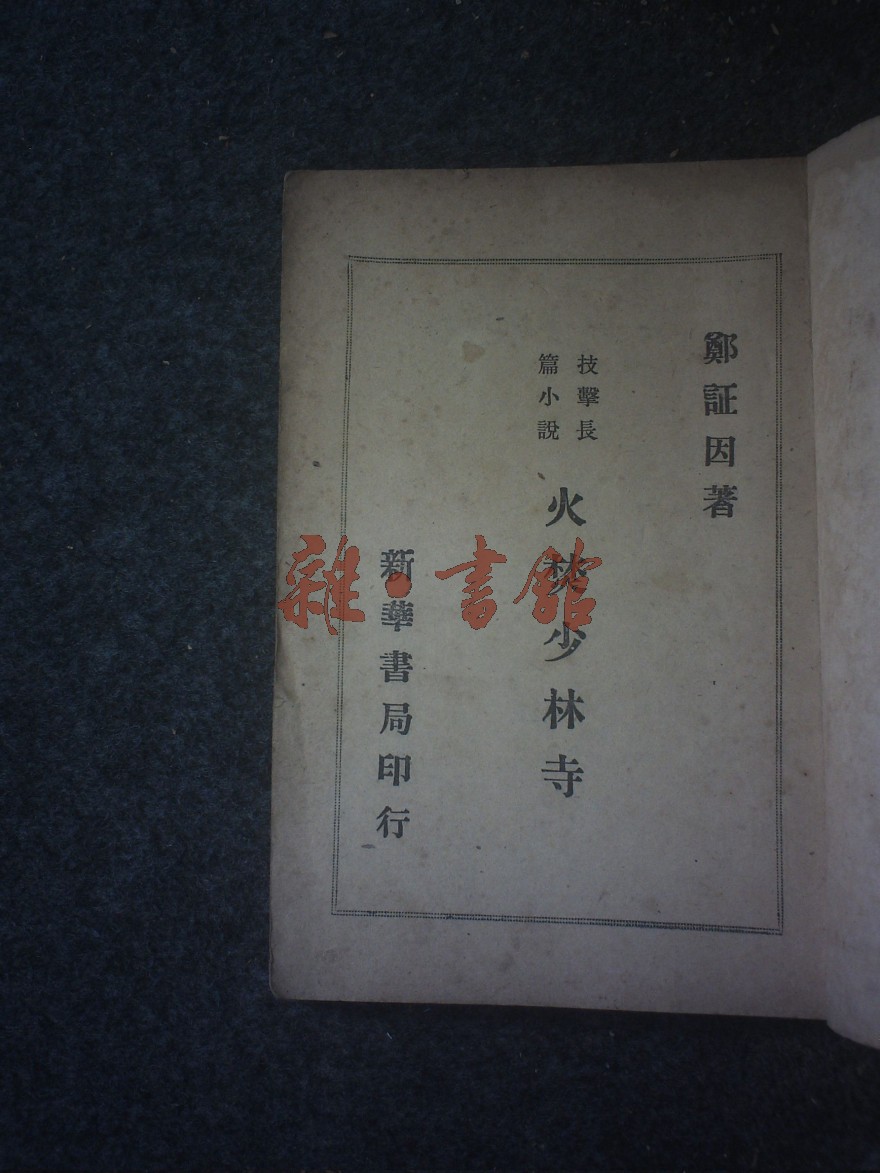 鄭証因著
技擊長
篇小說
火焚少林寺
新華書局印行
雜·書館